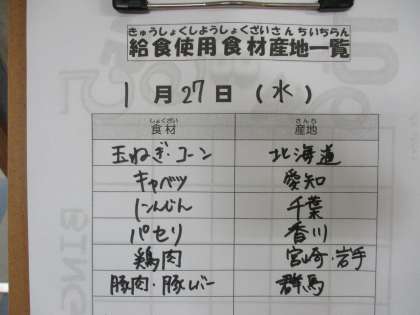 きゅうしょくしようしょくざいさんちいちらん
給食使用食材産地一覧
1月27日(水)
しょくざい さんち
食材 産地
玉ねぎ・コーン 北海道
キャベツ 愛知
にんじん 千葉
パセリ 香川
鶏肉 宮崎・岩手
豚肉・豚レバー 群馬
BING